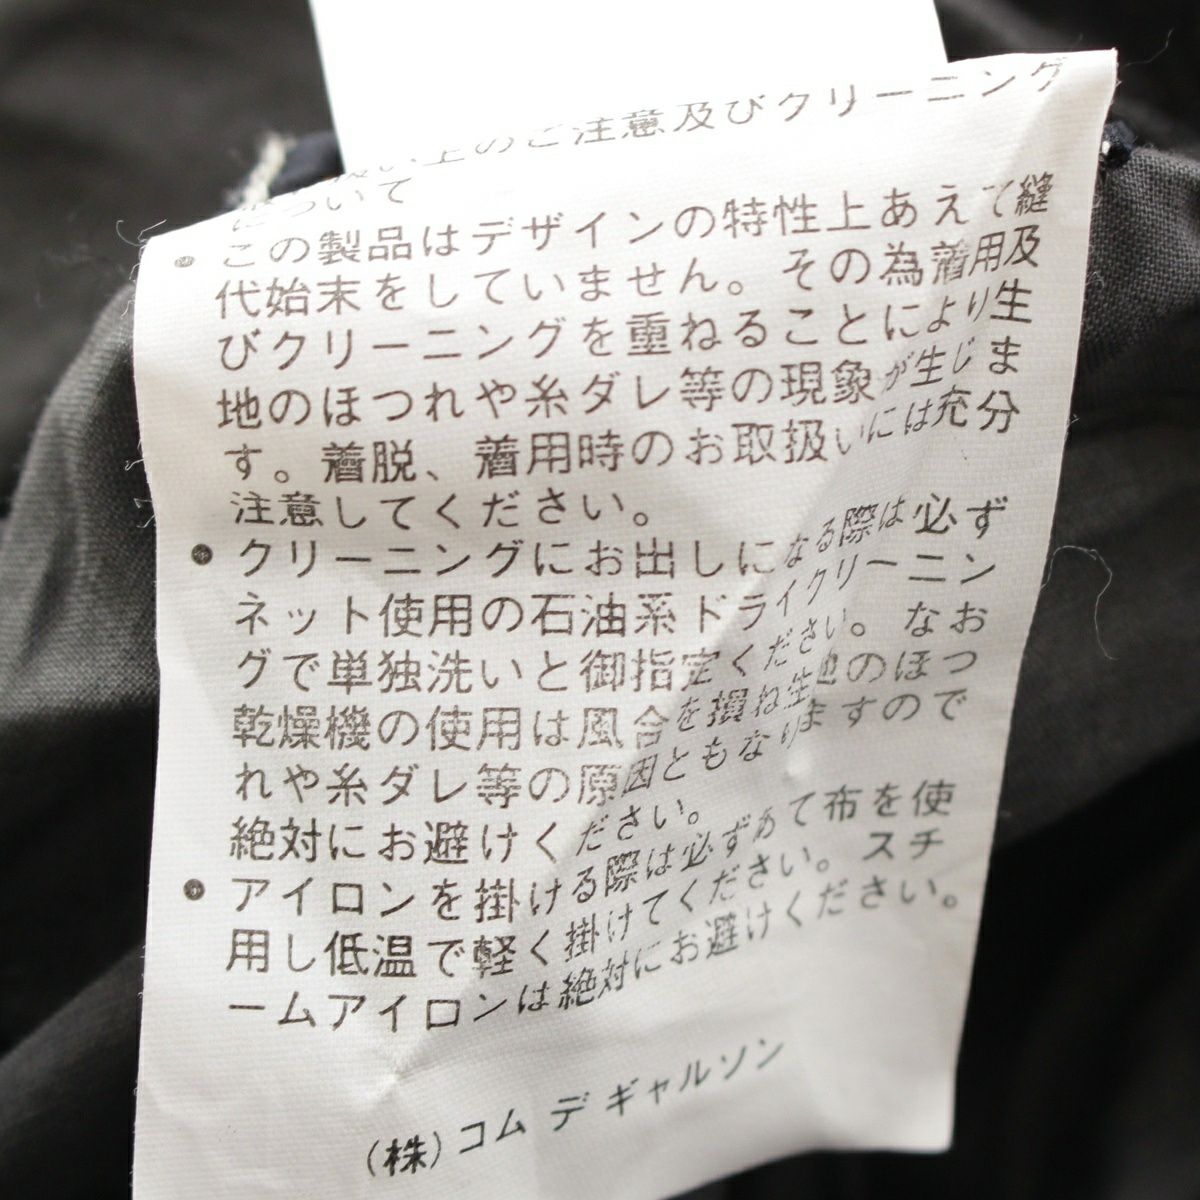 扱い上のご注意及びクリーニング
について
• この製品はデザインの特性上あえて縫
代始末をしていません。その為着用及
びクリーニングを重ねることにより生
地のほつれや糸ダレ等の現象が生じま
す。着脱、着用時のお取扱いには充分
注意してください。
• クリーニングにお出しになる際は必ず
ネット使用の石油系ドライクリーニン
グで単独洗いと御指定ください。なお
乾燥機の使用は風合を損ね生地のほつ
れや糸ダレ等の原因ともなりますので
絶対にお避けください。
• アイロンを掛ける際は必ずあて布を使
用し低温で軽く掛けてください。スチ
ームアイロンは絶対にお避けください。
(株)コム デ ギャルソン